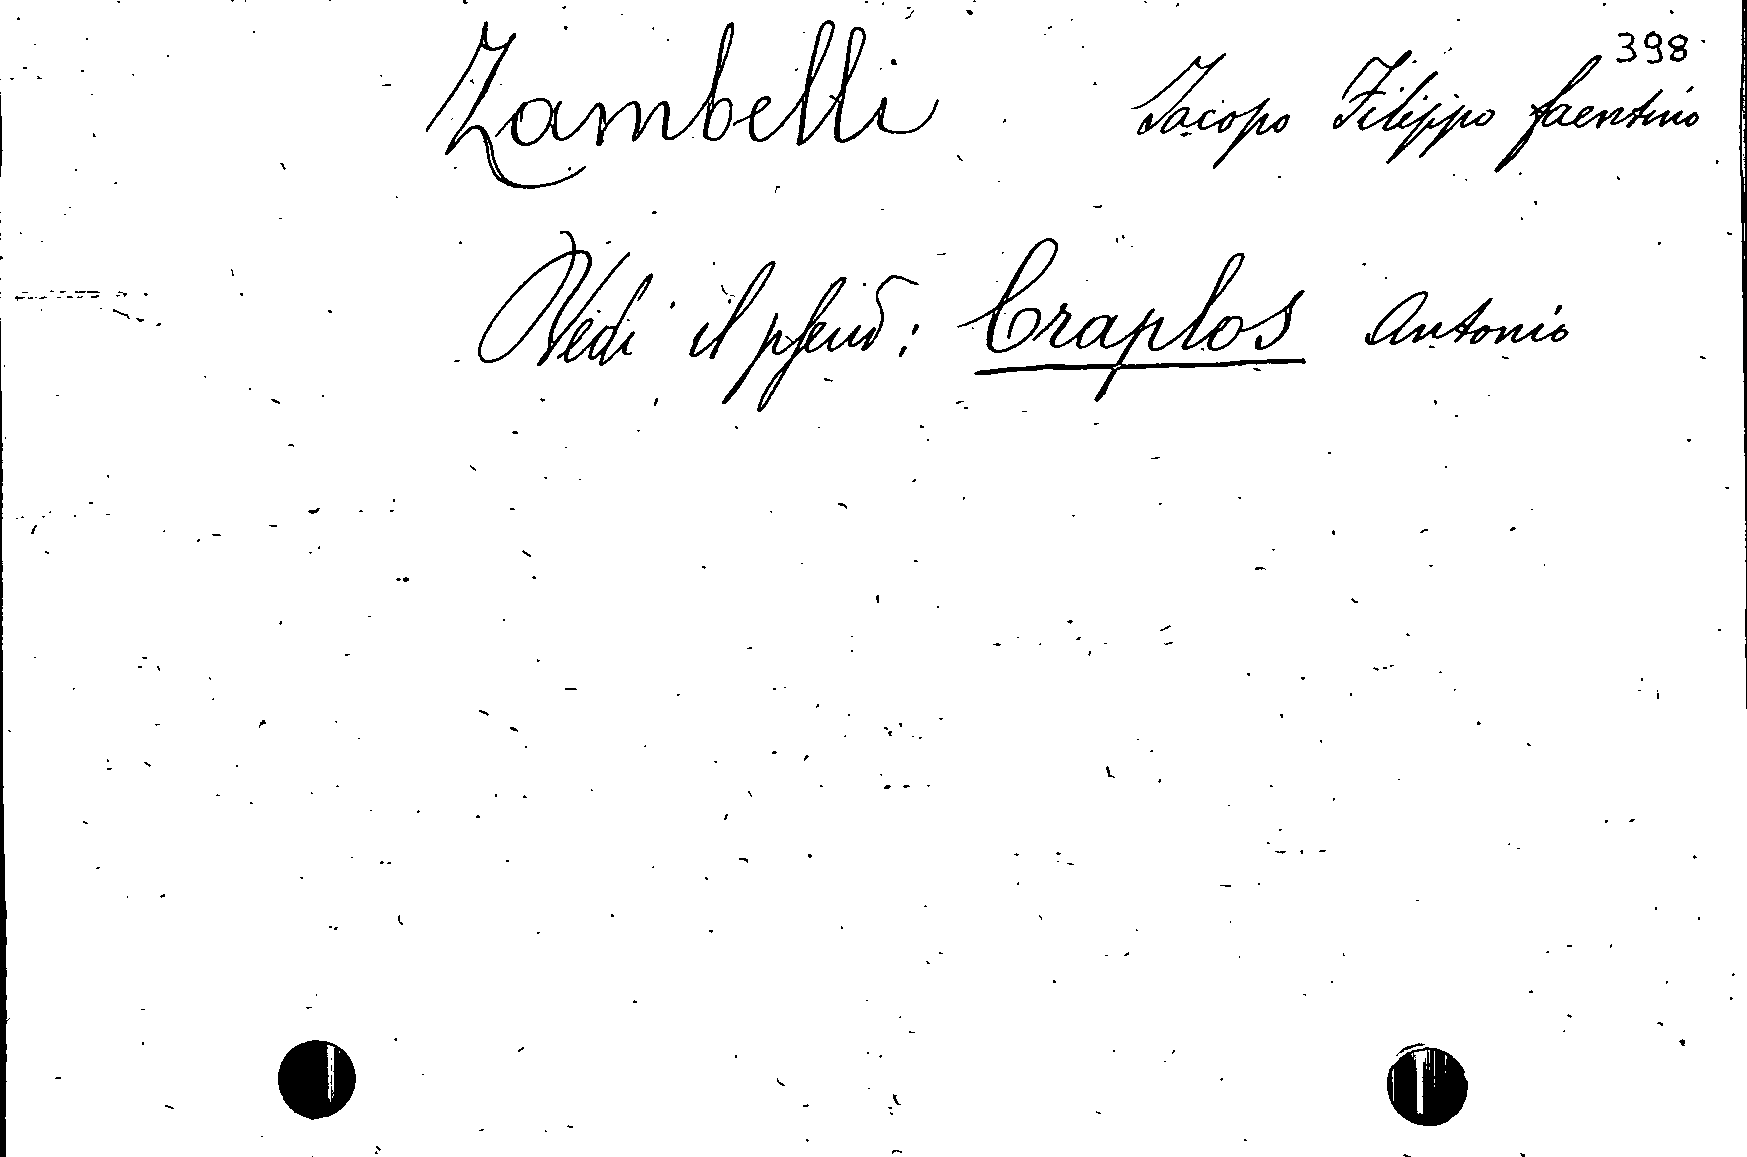 398
Zambelli Jacopo Filippo faentino
Vedi il pseud: Craplos Antonio